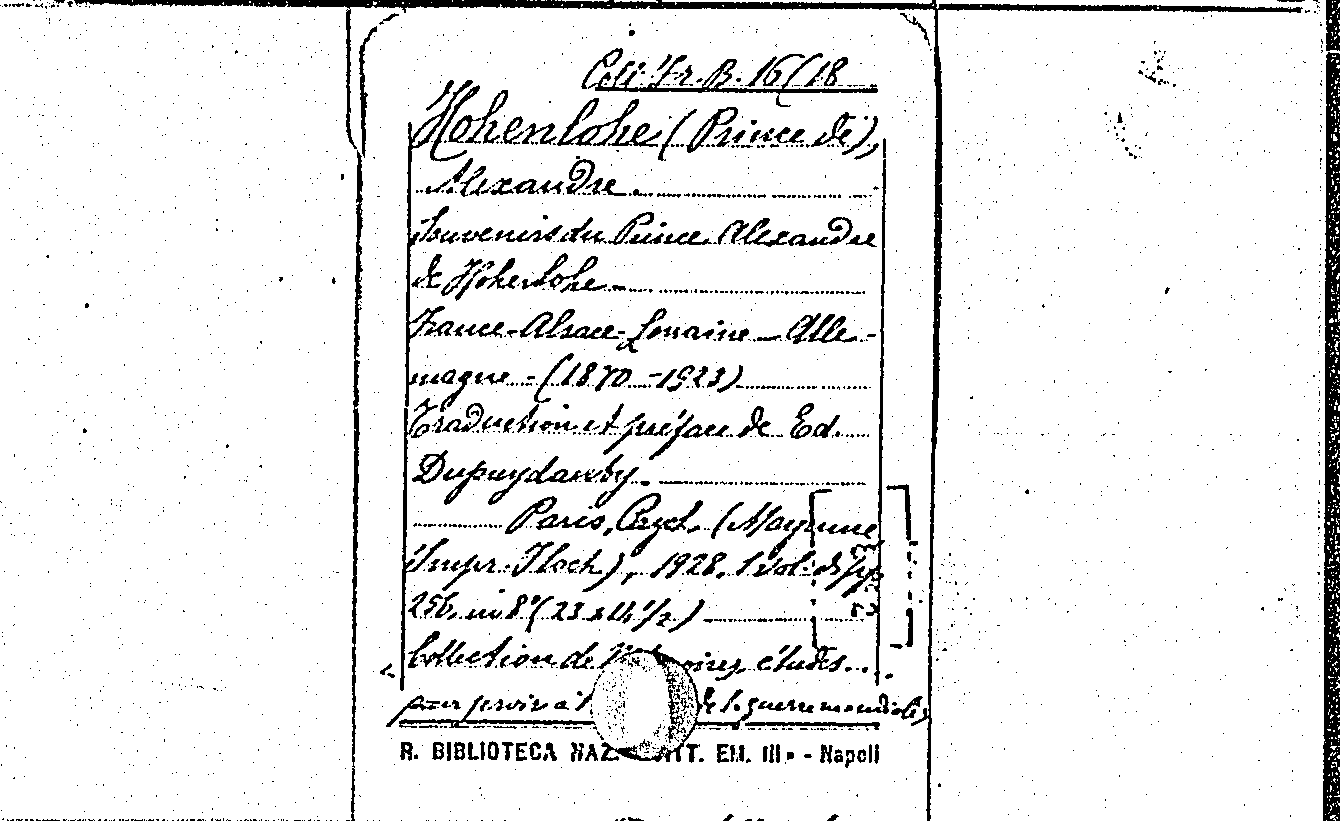 Coll. Fr. B. 16/18
Hohenlohe (Prince de),
Alexandre.
Souvenirs du Prince Alexandre
de Hohenlohe -
France-Alsace-Lorraine - Alle-
magne - (1870 - 1923)
Traduction et préface de Ed.
Paris, Payot. (Mayenne
Impr. Floch), 1928. 1 vol. di pp
256. in 8° (23 x 14 1/2)
Collection de études...
pour servir à de la guerre mondiale
R. BIBLIOTECA NAZ. VITT. EM. III - Napoli